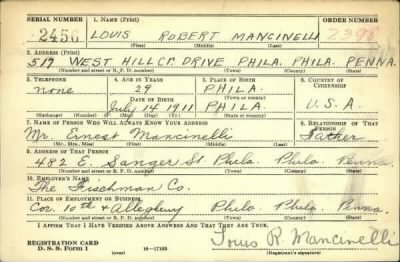 SERIAL NUMBER 1. NAME (Print) ORDER NUMBER
2456 LOUIS ROBERT MANCINELLI 2398
(First) (Middle) (Last)
2. ADDRESS (Print)
517 WEST HILLCR. DRIVE, PHILA. PHILA. PENNA.
(Number and street or R. F. D. number) (Town) (County) (State)
3. TELEPHONE 4. AGE IN YEARS 5. PLACE OF BIRTH 6. COUNTRY OF CITIZENSHIP
none 29 PHILA.
DATE OF BIRTH (Town or county)
July 14 1911 PHILA. U.S.A.
(Exchange) (Number) (Mo.) (Day) (Yr.) (State or country)
7. NAME OF PERSON WHO WILL ALWAYS KNOW YOUR ADDRESS 8. RELATIONSHIP OF THAT PERSON
Mr. Ernest Mancinelli Father
(Mr., Mrs., Miss) (First) (Middle) (Last)
9. ADDRESS OF THAT PERSON
482 E. Sanger St Phila. Phila. Penna.
(Number and street or R. F. D. number) (Town) (County) (State)
10. EMPLOYER'S NAME
The Frischman Co.
11. PLACE OF EMPLOYMENT OR BUSINESS
Cor. 10th & Allegheny Phila. Phila. Penna.
(Number and street or R. F. D. number) (Town) (County) (State)
I AFFIRM THAT I HAVE VERIFIED ABOVE ANSWERS AND THAT THEY ARE TRUE.
REGISTRATION CARD
D. S. S. Form 1 (over) 16—17105 Louis R. Mancinelli
(Registrant's signature)